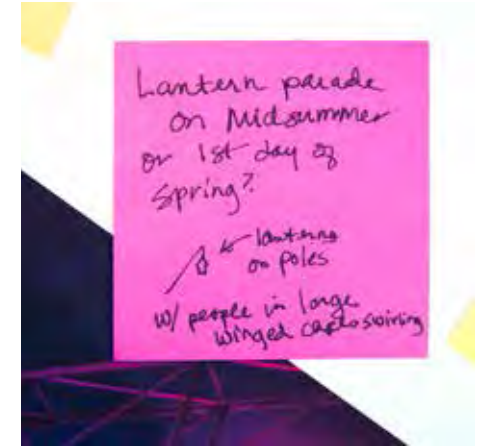 Lantern parade
on Midsummer
or 1st day of
spring?
lanterns
on poles
w/ people in large
winged capes swirling